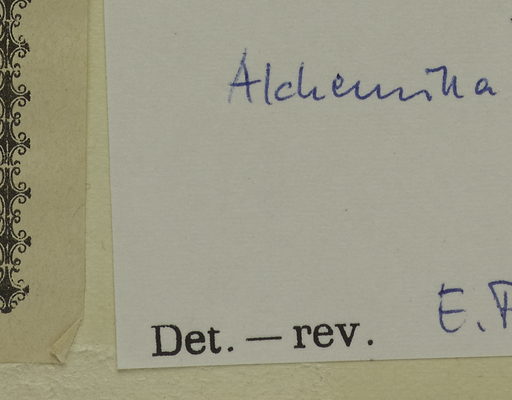 Alchemilla
Det. — rev. E.